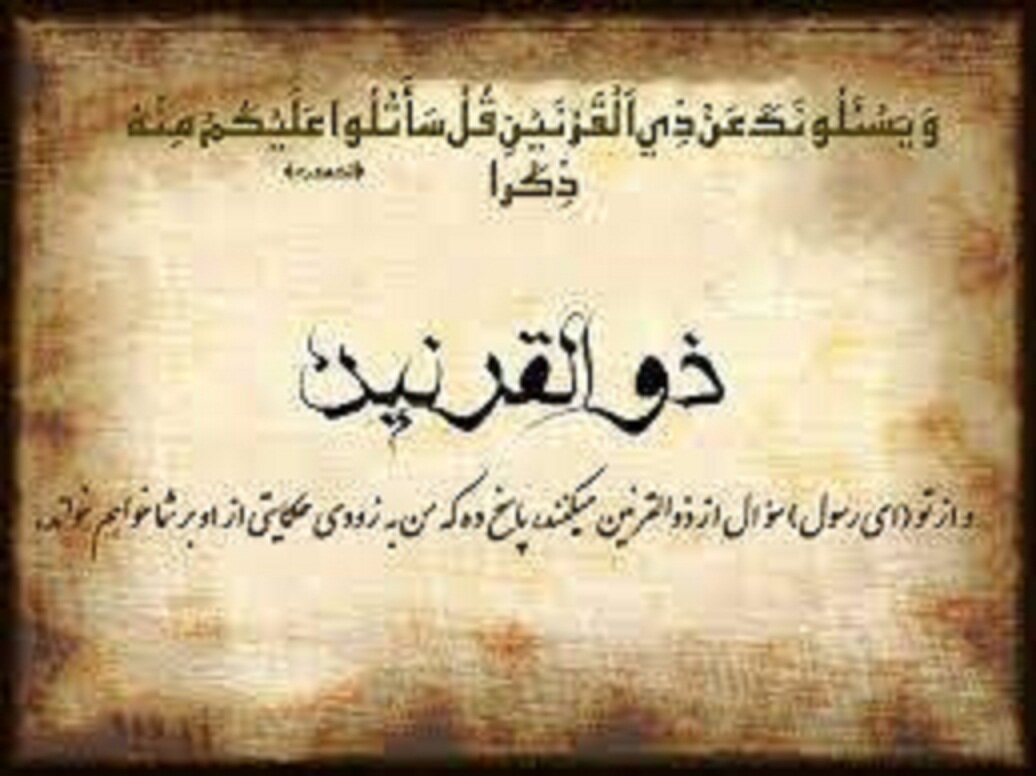 وَ يَسْئَلُونَكَ عَنْ ذِي اَلْقَرْنَيْنِ قُلْ سَأَتْلُوا عَلَيْكُمْ مِنْهُ
ذِكْرا
ذوالقرنین
و از تو (ای رسول) سؤال از ذوالقرنین میکنند، پاسخ ده که من به زودی حکایتی از او بر شما خواهم خواند.